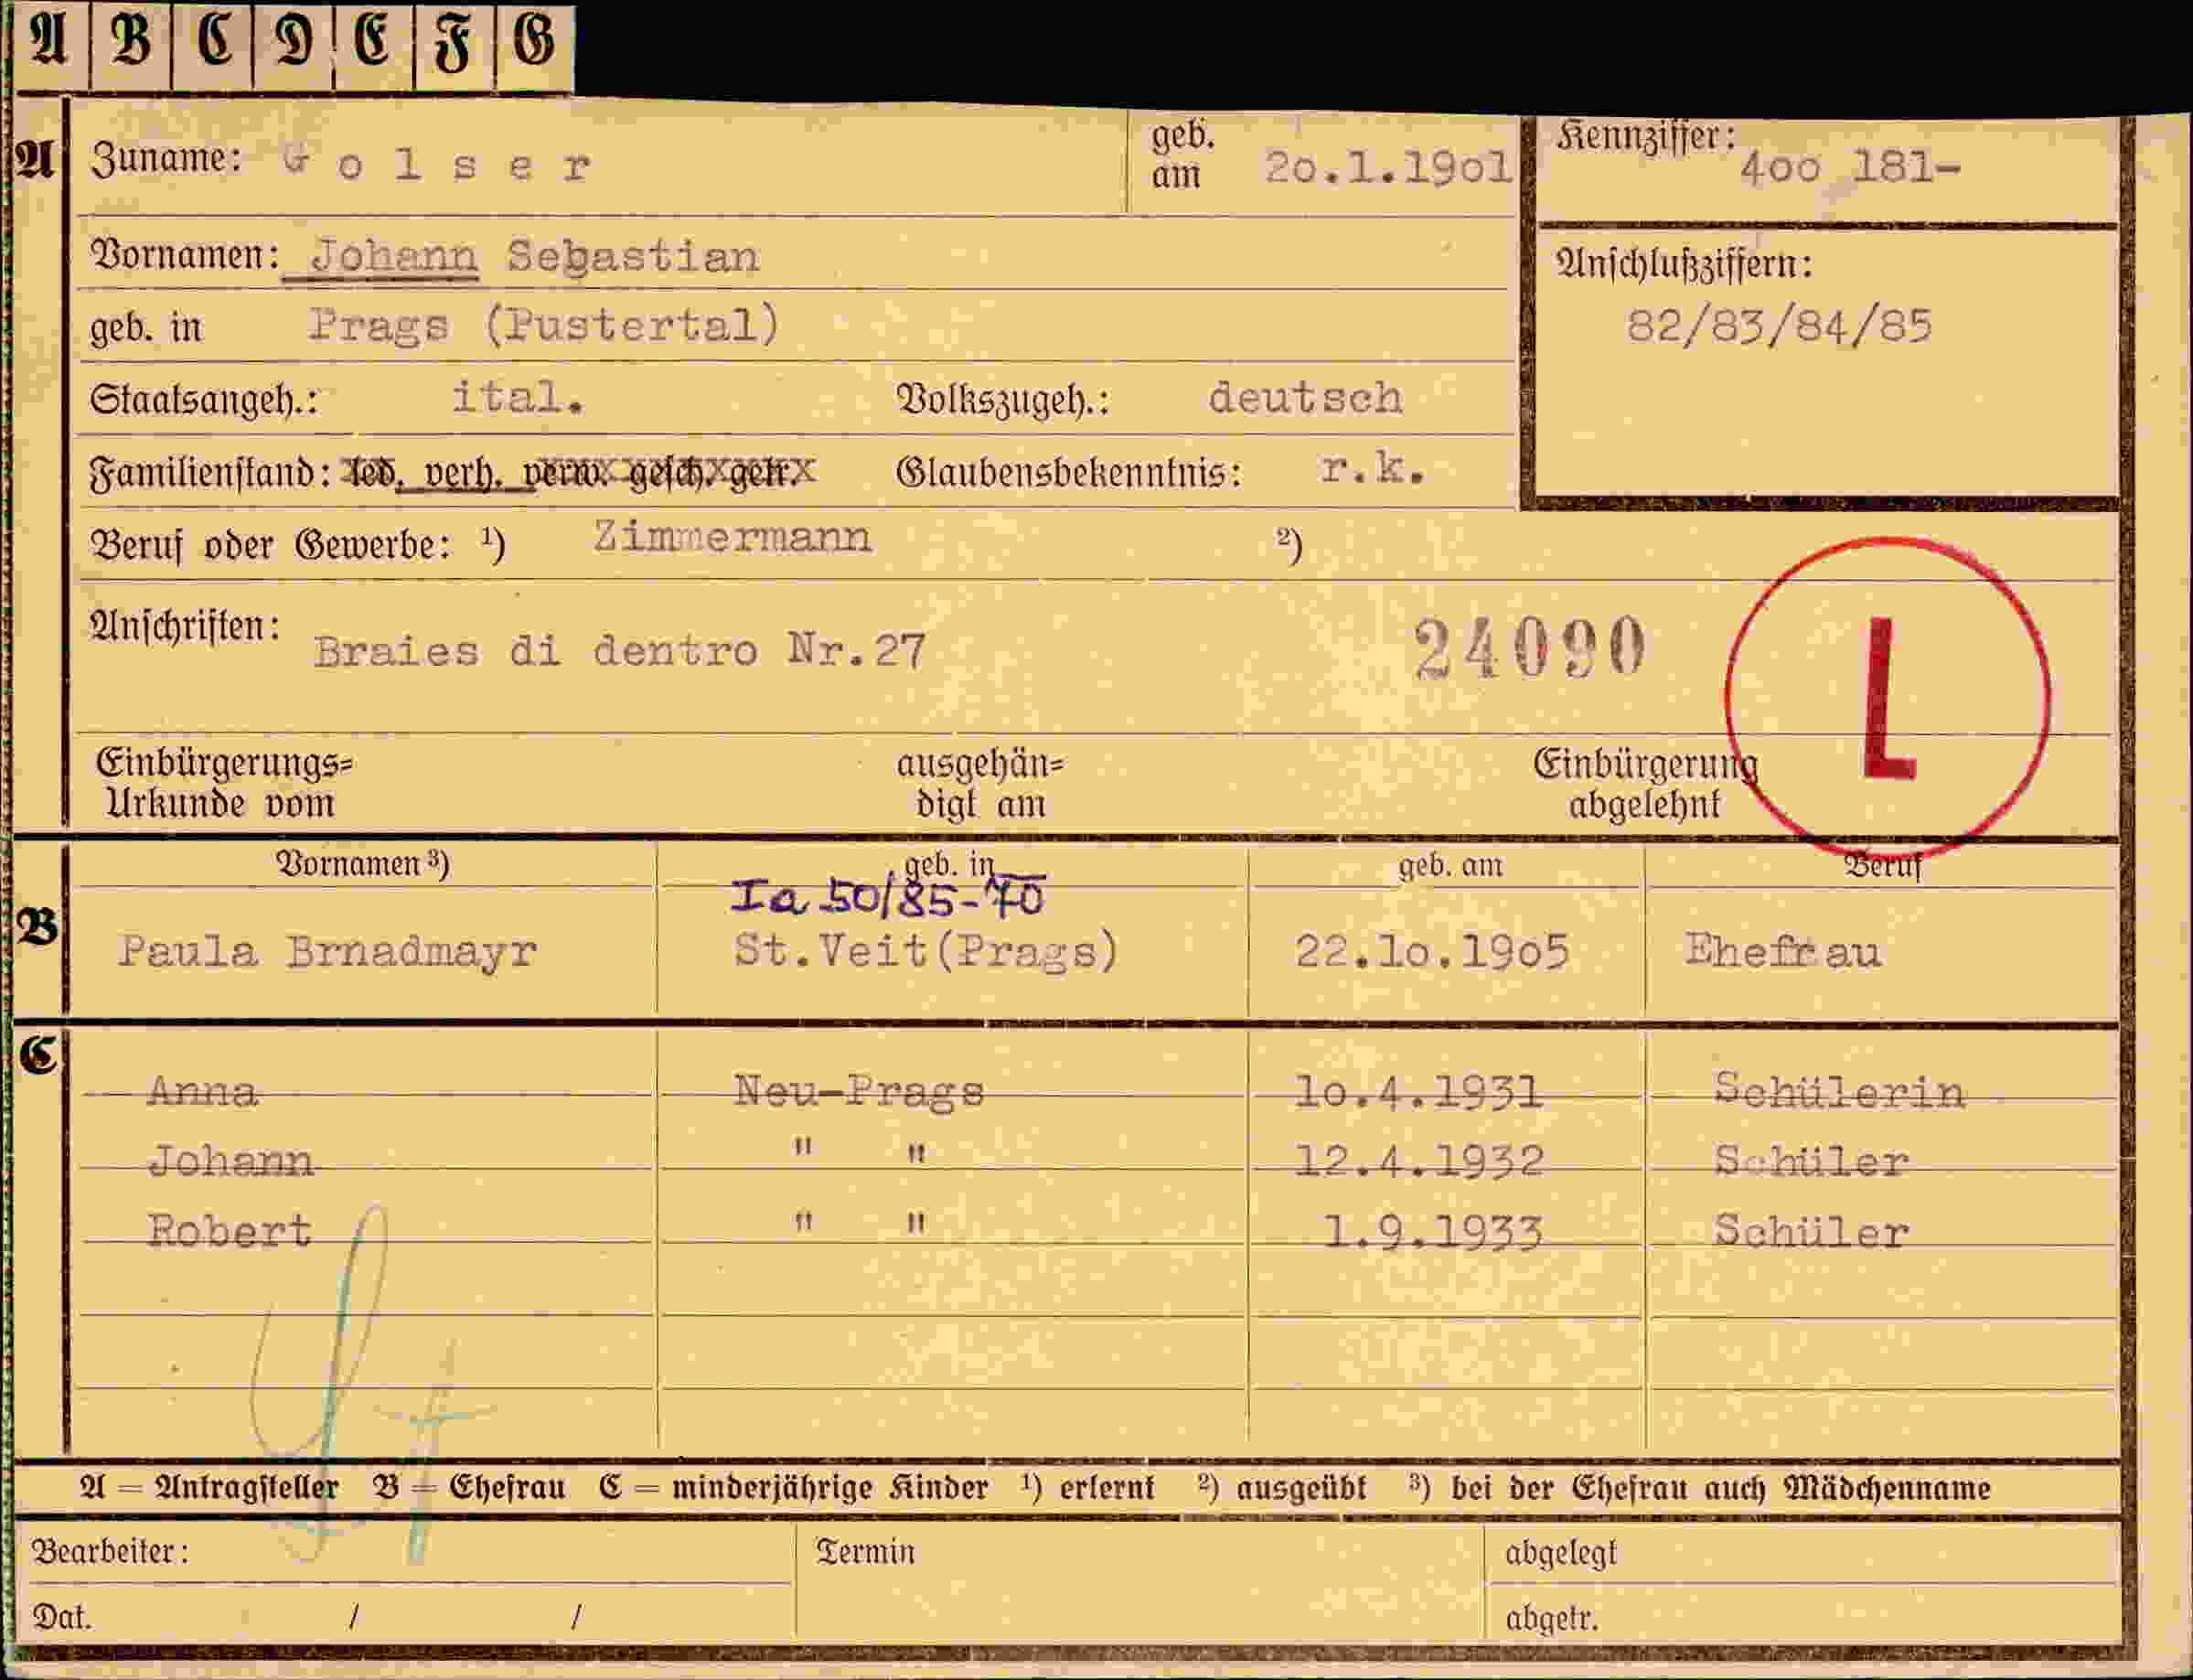 A B C D E F G
A Zuname: Golser geb. am 20.1.1901 Kennziffer: 400 181-
Vornamen: Johann Sebastian Anschlußziffern:
geb. in Prags (Pustertal) 82/83/84/85
Staatsangeh.: ital. Volkszugeh.: deutsch
Familienstand: led. verh. verw. gesch. getr. Glaubensbekenntnis: r.k.
Beruf oder Gewerbe: ¹) Zimmermann ²)
Anschriften: Braies di dentro Nr.27 24090 L
Einbürgerungs= ausgehän= Einbürgerung
Urkunde vom digt am abgelehnt
Vornamen ³) geb. in geb. am Beruf
Ia 50/85-70
B Paula Brnadmayr St.Veit(Prags) 22.10.1905 Ehefrau
C
Anna Neu-Prags 10.4.1931 Schülerin
Johann " " 12.4.1932 Schüler
Robert " " 1.9.1933 Schüler
A = Antragsteller B = Ehefrau C = minderjährige Kinder ¹) erlernt ²) ausgeübt ³) bei der Ehefrau auch Mädchenname
Bearbeiter: Termin abgelegt
Dat. / / abgetr.